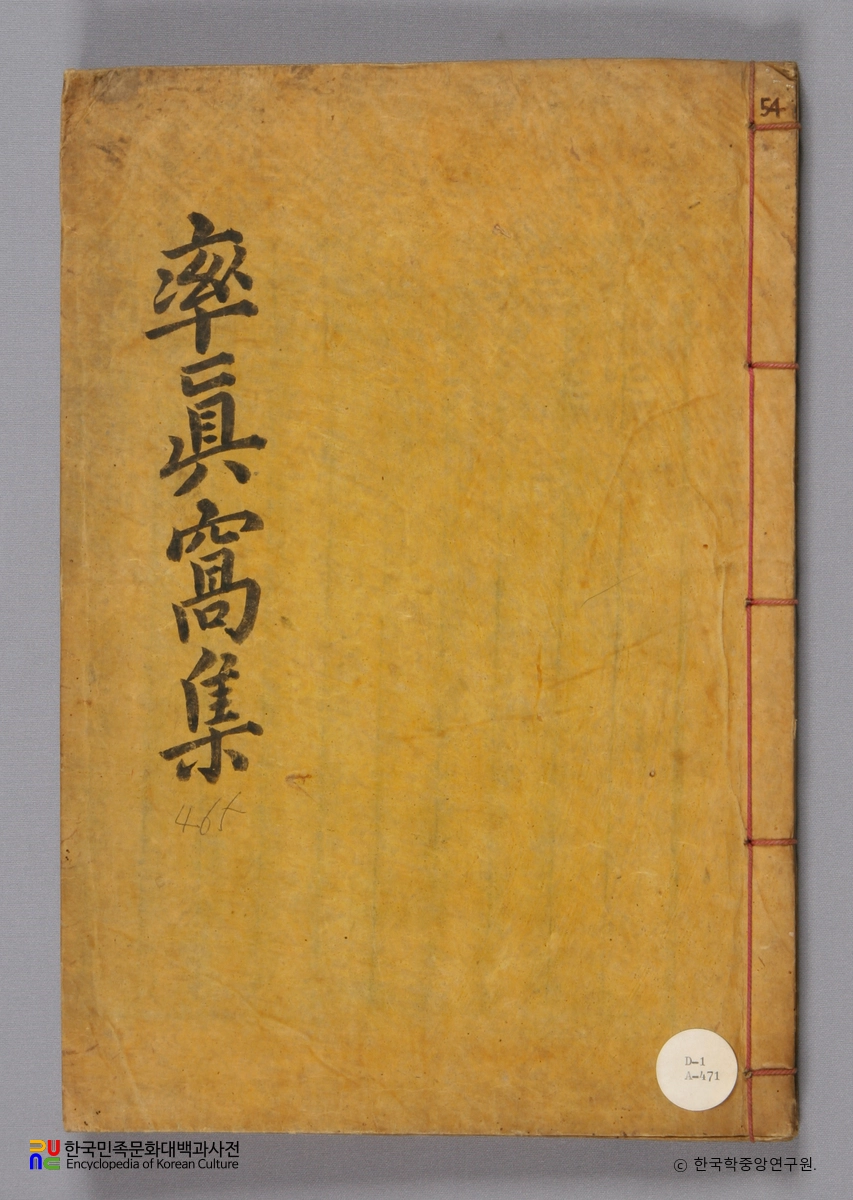 54
率眞窩集
465
D-1
A-471
한국민족문화대백과사전
Encyclopedia of Korean Culture
ⓒ 한국학중앙연구원.